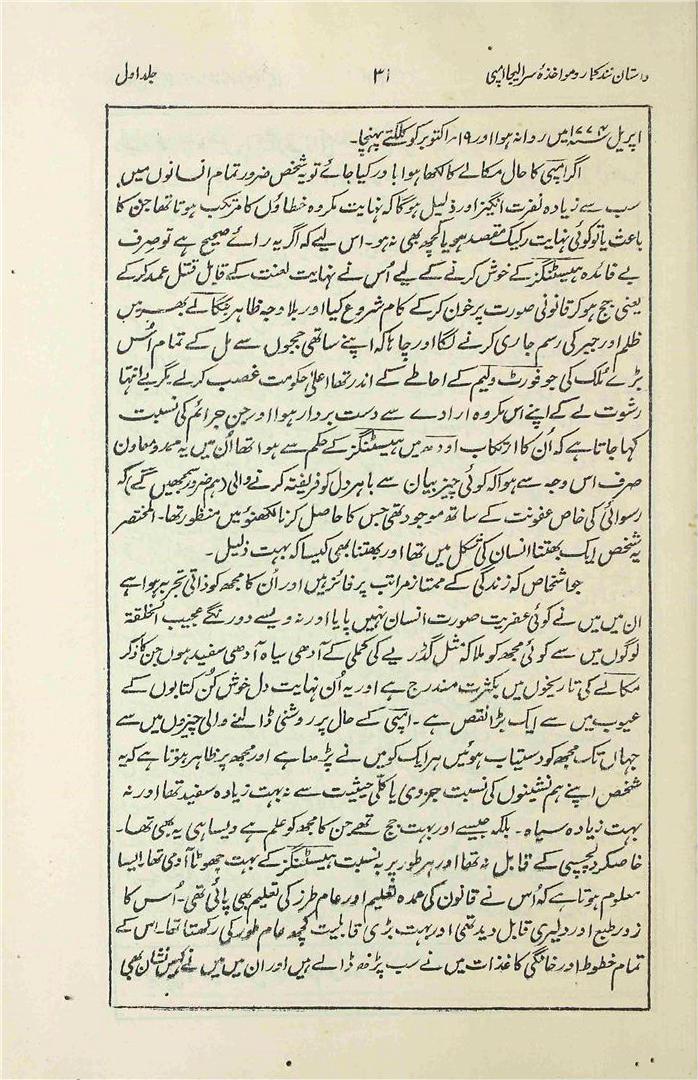 داستان نندکمار و مواخذۂ سر الیجا امپی ۳۱ جلد اول
اپریل ۱۷۷۴ء میں روانہ ہوا اور ۱۹۔ اکتوبر کو کلکتے پہنچا۔
اگر امپی کا حال مکالے کا لکھا ہوا باور کیا جائے تو یہ شخص ضرور تمام انسانوں میں
سب سے زیادہ نفرت انگیز اور ذلیل ہوگا کہ نہایت مکروہ خطاؤں کا مرتکب ہوتا تھا جن کا
باعث یا تو کوئی نہایت رکیک مقصد ہو یا کچھ بھی نہ ہو۔ اس لیے کہ اگر یہ رائے صحیح ہے تو صرف
بے فائدہ ہیسٹنگز کے خوش کرنے کے لیے اُس نے نہایت لعنت کے قابل قتل عمد کرکے
یعنی جج ہو کر قانونی صورت پر خون کرکے کام شروع کیا اور بلا وجہ ظاہر بنگالے بھر میں
ظلم اور جبر کی رسم جاری کرنے لگا اور چاہا کہ اپنے ساتھی ججوں سے مل کے تمام اُس
بڑے مُلک کی جو فورٹ ولیم کے احاطے کے اندر تھا اعلیٰ حکومت غصب کرلے مگر بے انتہا
رشوت لے کے اپنے اس مکروہ ارادے سے دست بردار ہوا اور جن جرائم کی نسبت
کہا جاتا ہے کہ اُن کا ارتکاب اودھ میں ہیسٹنگز کے حکم سے ہوا تھا اُن میں یہ ممد و معاون
صرف اس وجہ سے ہوا کہ کوئی چیز بیان سے باہر دل کو فریفتہ کرنے والی (ہم ضرور سمجھیں گے) کہ
رسوائی کی خاص عفونت کے ساتھ موجود تھی جس کا حاصل کرنا لکھنؤ میں منظور تھا۔ المختصر
یہ شخص ایک بھتنا انسان کی شکل میں تھا اور بھتنا بھی کیسا کہ بہت ذلیل۔
جو اشخاص کہ زندگی کے ممتاز مراتب پر فائز ہیں اور اُن کا مجھ کو ذاتی تجربہ ہوا ہے
ان میں میں نے کوئی عفریت صورت انسان نہیں پایا اور نہ ویسے دو رنگے عجیب الخلقۃ
لوگوں میں سے کوئی مجھ کو ملا کہ مثل گڈریے کی کملی کے آدھی سیاہ آدھی سفید ہوں جن کا ذکر
مکالے کی تاریخوں میں بکثرت مندرج ہے اور یہ اُن نہایت دل خوش کُن کتابوں کے
عیوب میں سے ایک بڑا نقص ہے۔ امپی کے حال پر روشنی ڈالنے والی چیزوں میں سے
جہاں تک مجھ کو دستیاب ہوئیں ہر ایک کو میں نے پڑھا ہے اور مجھ پر ظاہر ہوتا ہے کہ یہ
شخص اپنے ہم نشینوں کی نسبت جزوی یا کلی حیثیت سے نہ بہت زیادہ سفید تھا اور نہ
بہت زیادہ سیاہ۔ بلکہ جیسے اور بہت جج تھے جن کا مجھ کو علم ہے ویسا ہی یہ بھی تھا۔
خاص کر دلچسپی کے قابل نہ تھا اور ہر طور پر بہ نسبت ہیسٹنگز کے بہت چھوٹا آدمی تھا۔ ایسا
معلوم ہوتا ہے کہ اُس نے قانون کی عمدہ تعلیم اور عام طرز کی تعلیم بھی پائی تھی۔ اُس کا
زور طبع اور دلیری قابل دید تھی اور بہت بڑی قابلیت کچھ عام طور کی رکھتا تھا۔ اس کے
تمام خطوط اور خانگی کاغذات میں نے سب پڑھ ڈالے ہیں اور ان میں میں نے کہیں نشان بھی